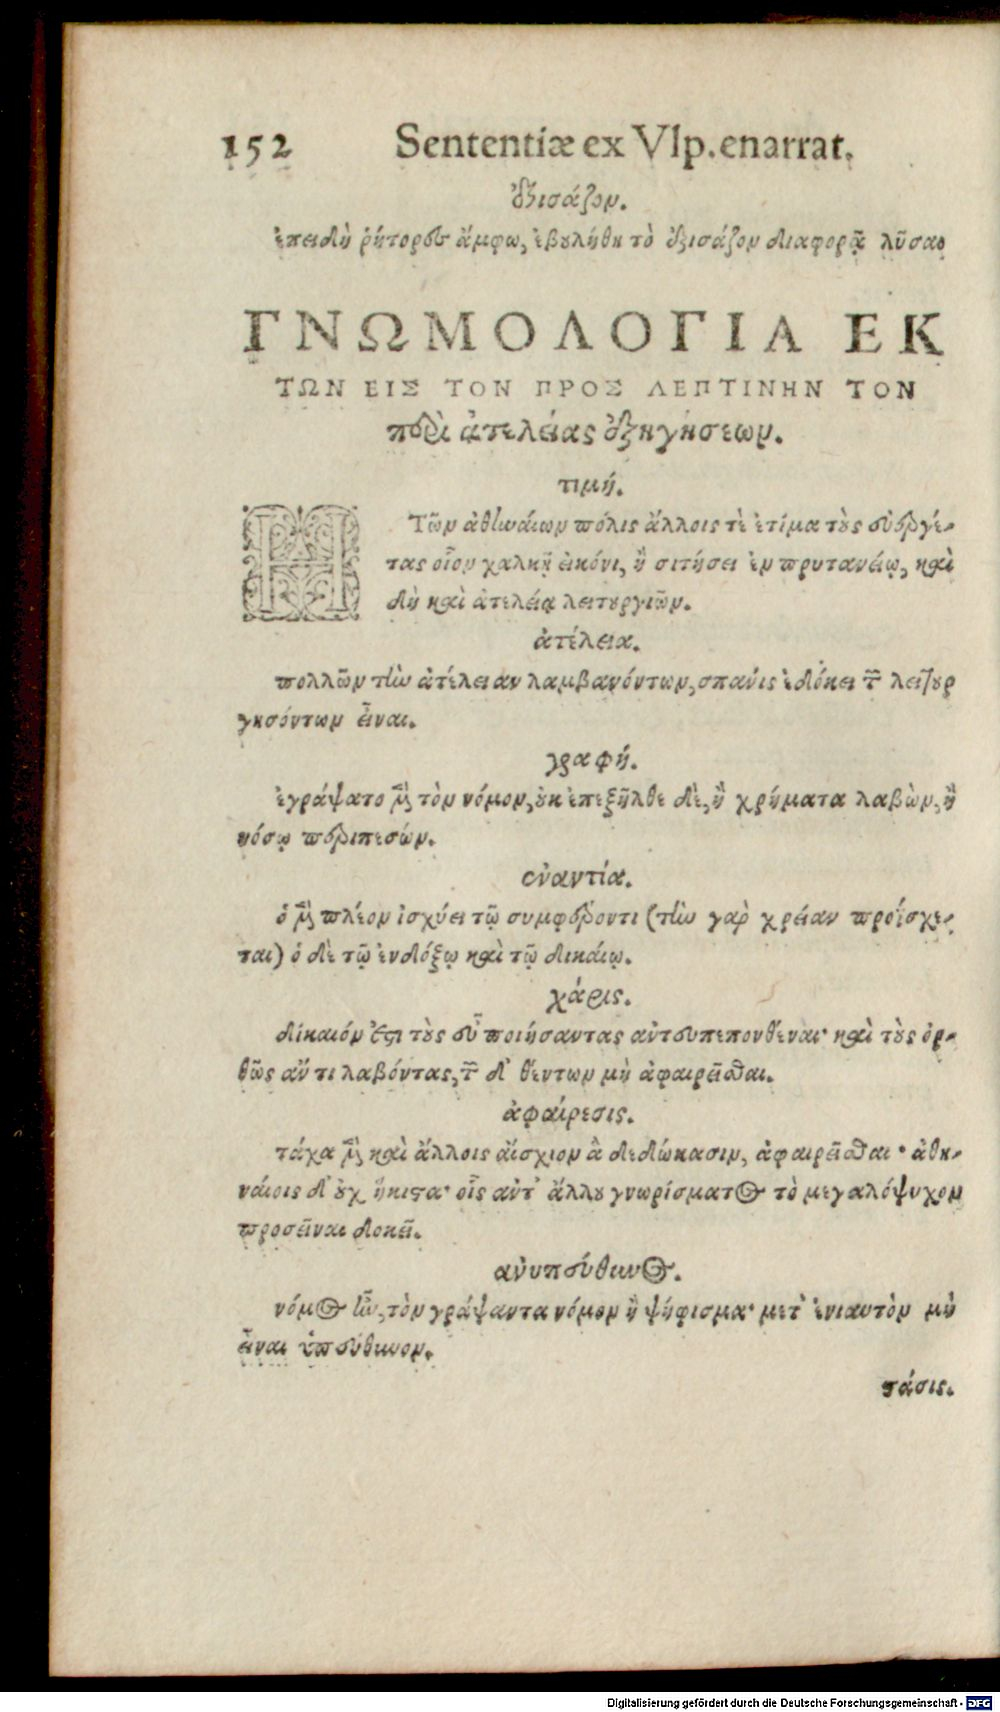 152 Sententiæ ex Vlp. enarrat.
ἐξισάζον.
ἐπειδὴ ῥήτορες ἄμφω, ἐβουλήθη τὸ ἐξισάζον διαφορᾷ λῦσαι
ΓΝΩΜΟΛΟΓΙΑ ΕΚ
ΤΩΝ ΕΙΣ ΤΟΝ ΠΡΟΣ ΛΕΠΤΙΝΗΝ ΤΟΝ
περὶ ἀτελείας ἐξηγήσεων.
τιμή.
Η Τῶν ἀθηναίων πόλις ἄλλοις τὲ ἐτίμα τοὺς εὐεργέ-
τας οἷον χαλκῇ εἰκόνι, ἢ σιτήσει ἐν πρυτανείῳ, καὶ
δὴ καὶ ἀτελείᾳ λειτουργιῶν.
ἀτέλεια.
πολλῶν τὴν ἀτέλειαν λαμβανόντων, σπάνις ἐδόκει τῶν λειτουρ
γησόντων εἶναι.
γραφή.
ἐγράψατο μὲν τὸν νόμον, οὐκ ἐπεξῆλθε δὲ, ἢ χρήματα λαβὼν, ἢ
νόσῳ περιπεσών.
ἐναντία.
ὁ μὲν πλέον ἰσχύει τῷ συμφέροντι (τὴν γὰρ χρείαν προΐσχε-
ται) ὁ δὲ τῷ ἐνδόξῳ καὶ τῷ δικαίῳ.
χάρις.
δίκαιόν ἐστι τοὺς εὖ ποιήσαντας ἀντευπεπονθέναι· καὶ τοὺς ὀρ-
θῶς ἄν τι λαβόντας, τῶν δ' θέντων μὴ ἀφαιρεῖσθαι.
ἀφαίρεσις.
τάχα μὲν καὶ ἄλλοις αἴσχιον ἃ δεδώκασιν, ἀφαιρεῖσθαι· ἀθη-
ναίοις δ' οὐχ ἥκιστα· οἷς ἀντ' ἄλλου γνωρίσματος τὸ μεγαλόψυχον
προσεῖναι δοκεῖ.
ἀνυπεύθυνος.
νόμος ἦν, τὸν γράψαντα νόμον ἢ ψήφισμα· μετ' ἐνιαυτὸν μὴ
εἶναι ὑπεύθυνον.
τάσις.
Digitalisierung gefördert durch die Deutsche Forschungsgemeinschaft - DFG